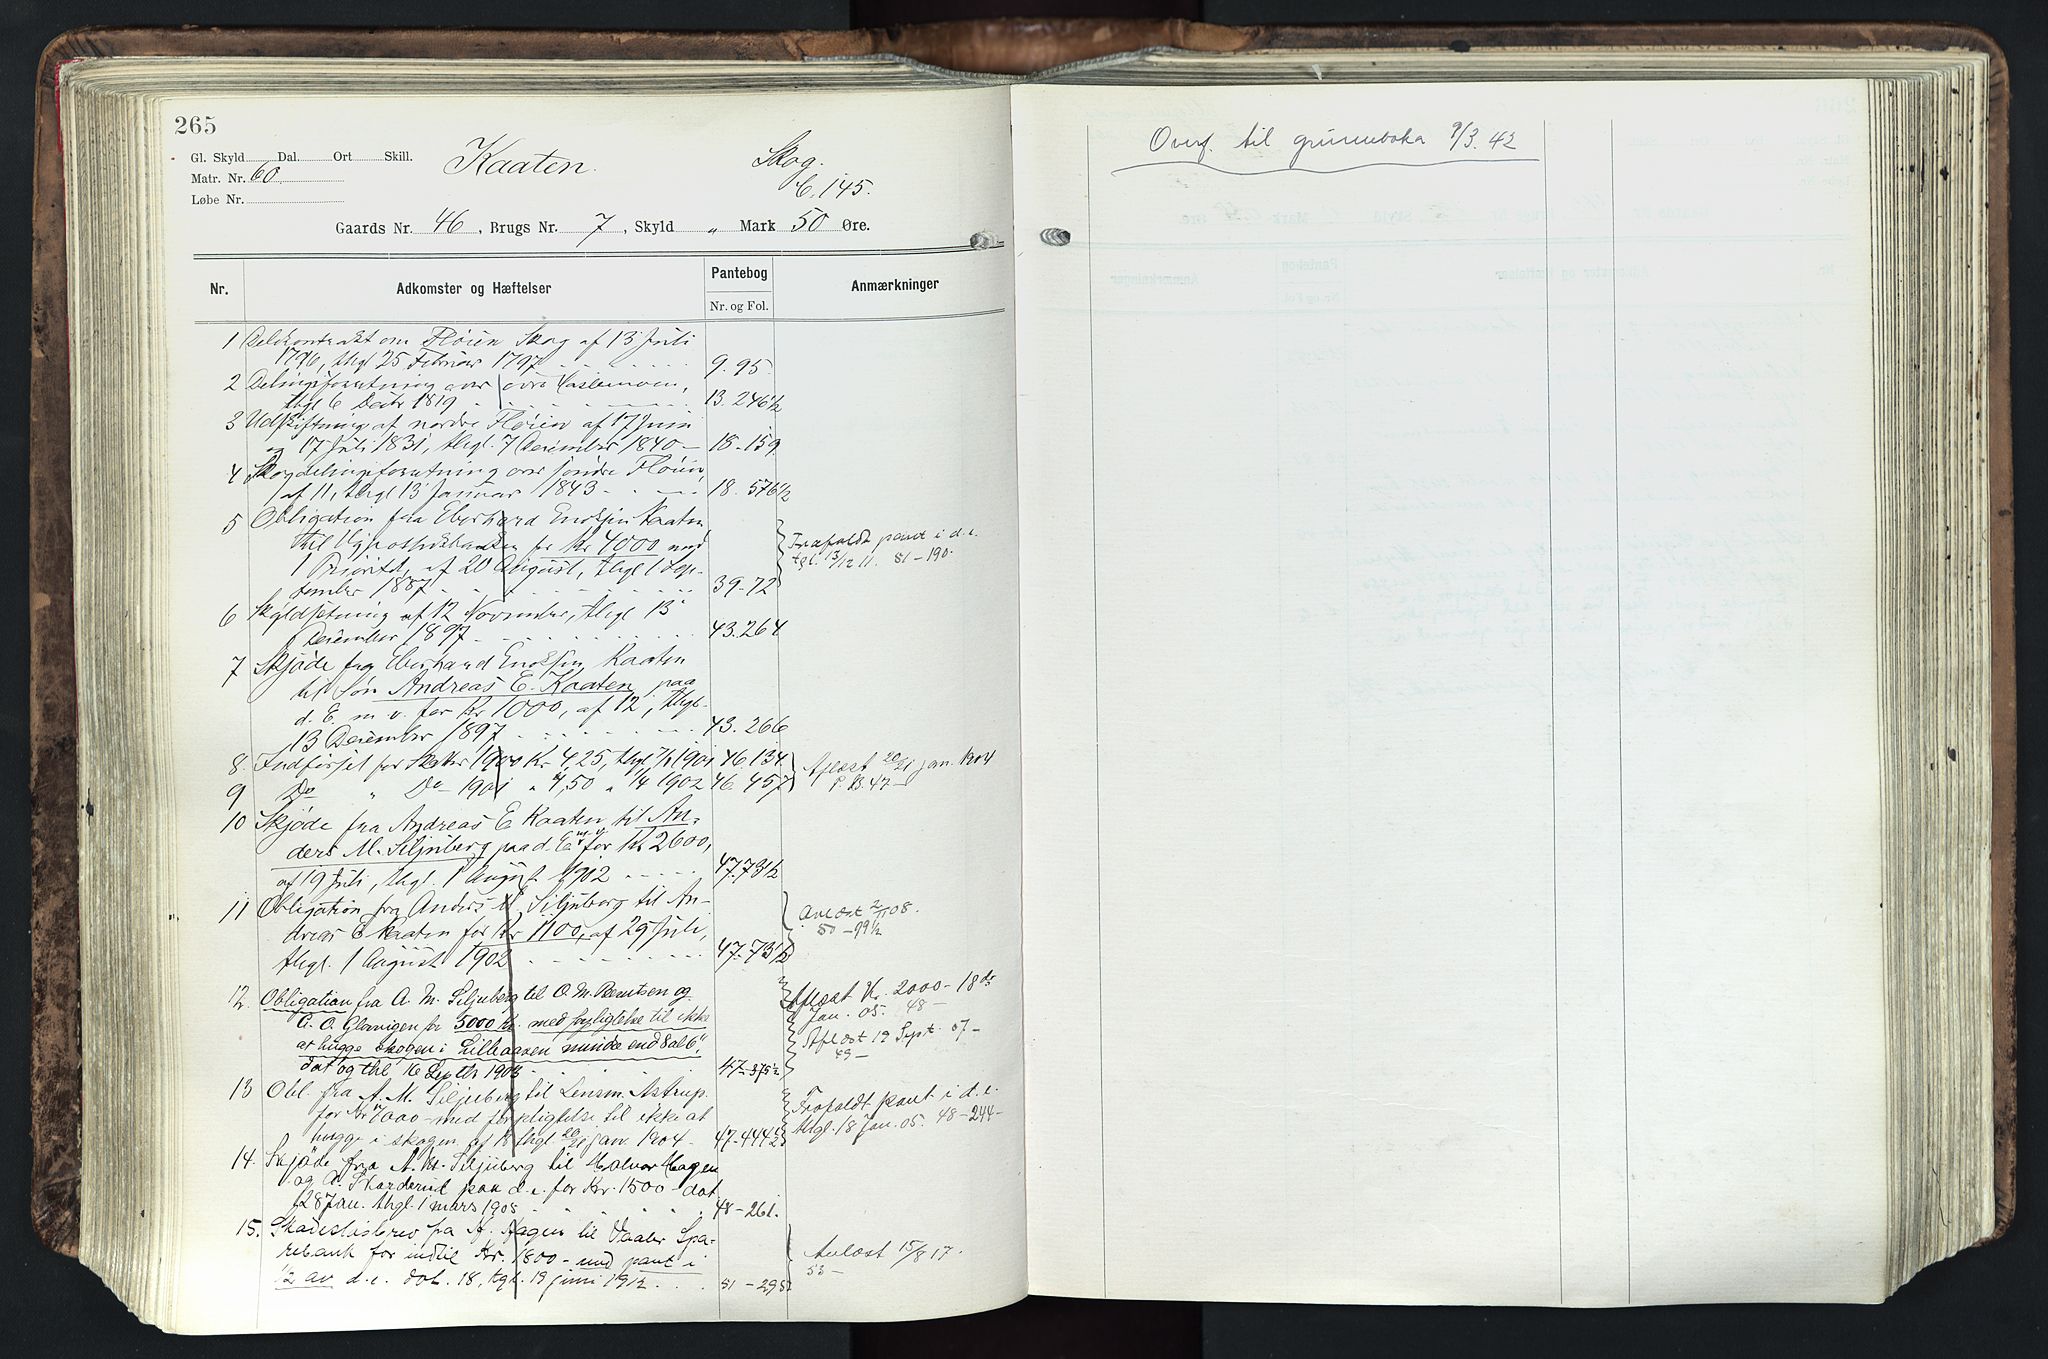 265
Gl. Skyld Dal. Ort Skill.
Matr. Nr. 60
Løbe Nr.
Kaaten.
Skog.
C. 145.
Gaards Nr. 46, Brugs Nr. 7, Skyld „ Mark 50 Øre.
Nr. Adkomster og Hæftelser Pantebog Anmærkninger
Nr. og Fol.
1 Delekontrakt om Fløien Skog af 13 Juli
1796, thgl 25 Februar 1797 9. 95
2 Delingsforretning over øvre Haslemoen,
thgl 6 Decbr 1819 13. 246½
3 Udskiftning af nordre Fløien af 17 Juni
og 17 Juli 1831, thgl. 7 December 1840 18-159
4 Skogdelingsforretning over søndre Fløien,
af 11, thgl 13 Januar 1843 18. 576½
5 Obligation fra Eberhard Enoksen Kaaten
til Hypothekbanken for Kr 4000 med
1 Prioritet, af 20 August, thgl 1 Sep-
tember 1887 39-72
Frafaldt pant i d. e.
tgl. 13/12 11. 81-190.
6 Skyldsetning af 12 November, thgl 13
December 1897 43. 264
7 Skjøde fra Eberhard Enoksen Kaaten
til søn Andreas E. Kaaten paa
d. E. m v. for Kr 1000, af 12, thgl.
13 December 1897 43. 266
8. Indførsel for skatter 1900 Kr 4,25, thgl 1901 46 134
9 Do „ Do 1901 „ 4,50 „ ¼ 1902 46. 457
Aflæst 20/21 jan. 1904
P. B. 47-
10 Skjøde fra Andreas E Kaaten til An-
ders M. Siljuberg paa d. E m.v. for Kr 2600,
af 19 Juli, thgl. 1 August 1902 47.73½
11 Obligation fra Anders M. Siljuberg til An-
dreas E Kaaten for Kr 1100, af 29 Juli,
thgl. 1 August 1902 47-73½
Avlæst 2/11 08.
50-99½
12. Obligation fra A. M. Siljuberg til O. M. Berntsen og
A. O. Glavigen for 5000 Kr. med forpligtelse til ikke
at hugge skogen i Lilleaasen mindre end 8 al 6",
dat og thl 16 Septbr 1903 47-375½
Aflæst Kr. 2000- 18de
Jan. 05. 48-
Aflæst 19 Sept. 07-
49-
13 Obl. fra A. M. Siljuberg til Lensm. Astrup
for Kr 4000- med forpligtelse til ikke at
hugge i skogen, af 18 thgl 20/21 jan. 1904- 47-444½
Frafaldt pant i d. e.
thgl. 18 Jan. 05. 48-244-
14. Skjøde fra A. M. Siljuberg til Halvor Hagen
og A. Skarderud paa d. e. for Kr. 1500- dat
28 Jan. thgl. 1 mars 1905 48-261.
15. Skadeslösbrev fra H. Hagen til Vaaler Spa-
rebank for indtil Kr. 1800- med pant i
½ av d. e. dat. 18, tgl. 19 juni 1912 51-295
Avlæst 15/8 17.
53-
Overf. til grunnboka 9/3. 42